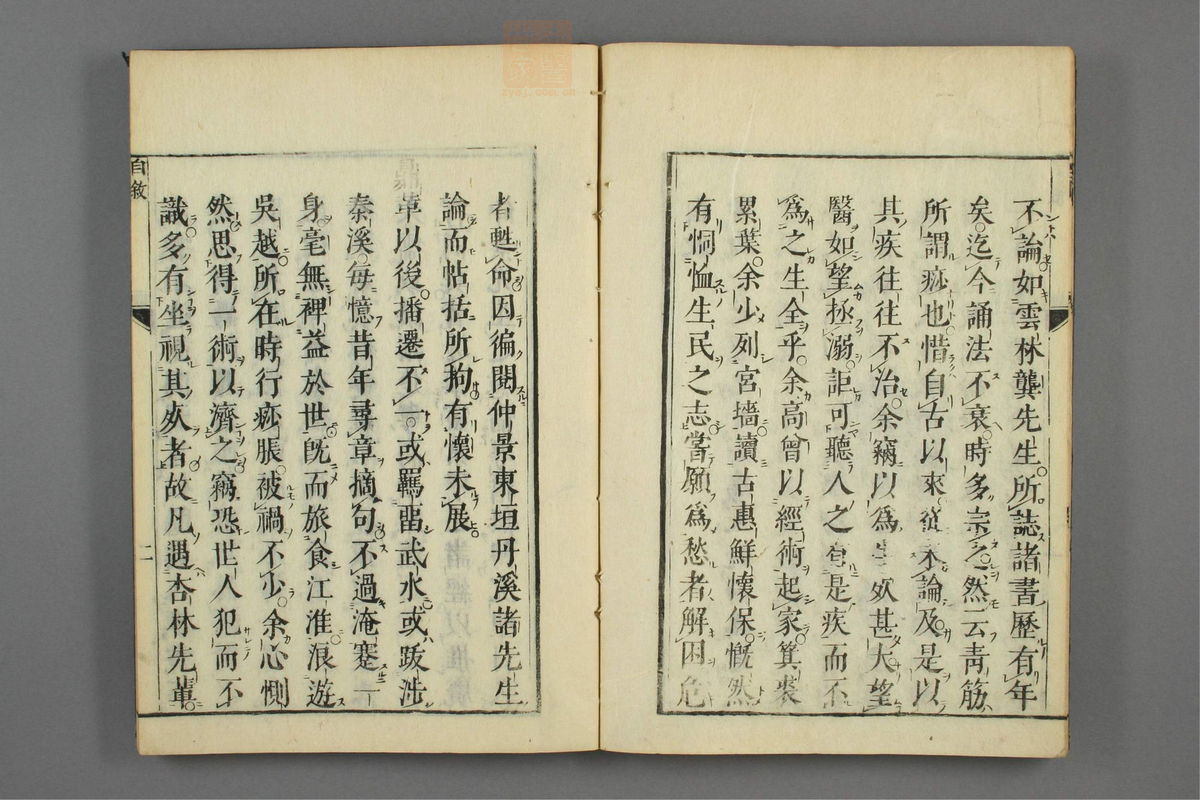 不論如雲林龔先生所誌諸書歷有年
矣迄今誦法不衰時多宗之然云青筋
所謂痧也惜自古以來從未論及是以
其疾往往不治余竊以為生死甚大望
醫如望拯溺詎可聽人之有是疾而不
為之生全乎余高曾以經術起家箕裘
累葉余少列宮墻讀古惠鮮懷保慨然
有恫恤生民之志嘗願為愁者解困危
者甦命因徧閱仲景東垣丹溪諸先生
論而帖括所拘有懷未展
鼎革以後播遷不一或羈畱武水或跋涉
秦溪每憶昔年尋章摘句不過淹蹇一
身毫無裨益於世既而旅食江淮浪遊
吳越所在時行痧脹被禍不少余心惻
然思得一術以濟之竊恐世人犯而不
識多有坐視其死者故凡遇杏林先輩
自敘
二